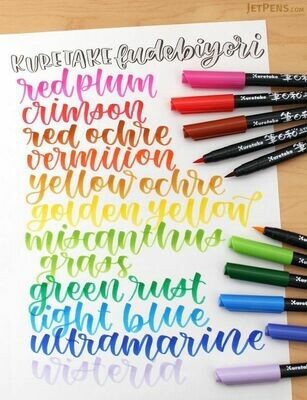 JETPENS.COM
KURETAKE fudebiyori
red plum
crimson
red ochre
vermilion
yellow ochre
golden yellow
miscanthus
grass
green rust
light blue
ultramarine
wisteria
Kuretake
Kuretake
Kuretake
Kuretake
Kuretake